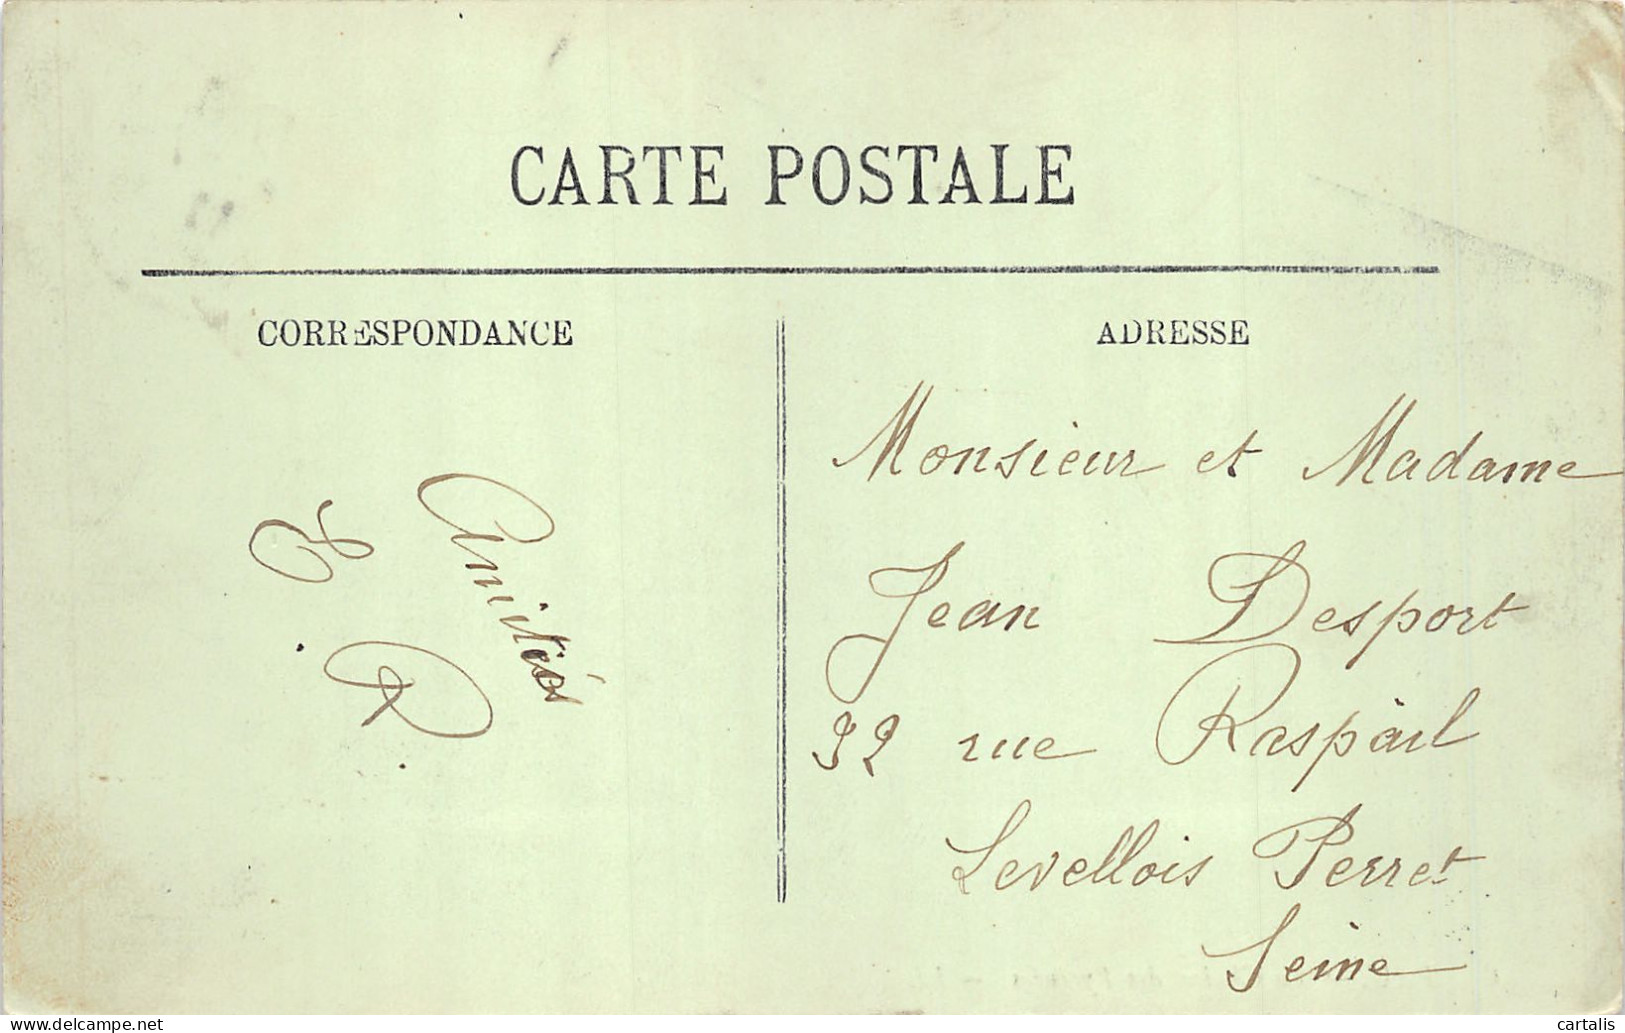 CARTE POSTALE
CORRESPONDANCE
Amitiés
E. D.
ADRESSE
Monsieur et Madame
Jean Desport
32 rue Raspail
Levellois Perret
Seine
delcampe.net
cartalis